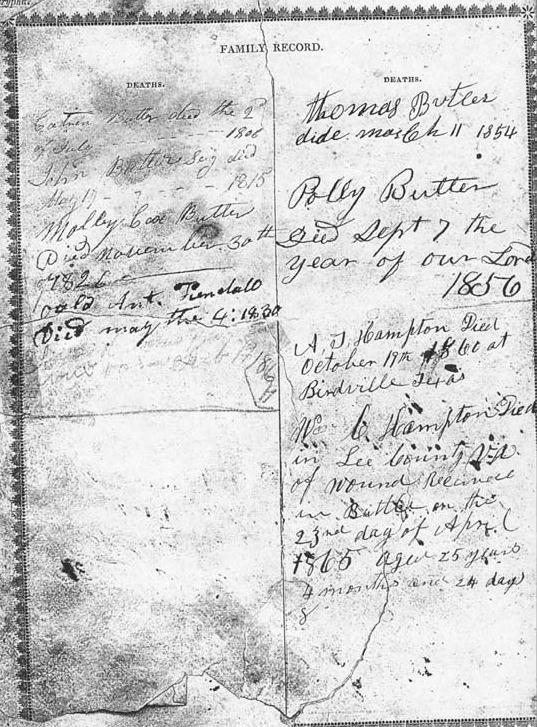 FAMILY RECORD.
DEATHS.
Butler died the 2d
of July - - - 1806
John Butler Sen died
May 19 - - - - 1815
Molly Cox Butler
Died November 30th
1826
oald Ant. Tendalo
Died may the 4: 1830
DEATHS.
thomas Butler
dide march 11 1854
Polly Butler
Died Sept 7 the
year of our Lord
1856
A. J. Hampton Died
October 19th 1860 at
Birdville Texas
Wm C Hampton Died
in Lee County Va
of wound Received
in Battle on the
23nd day of April
1865 aged 25 years
4 months and 24 days